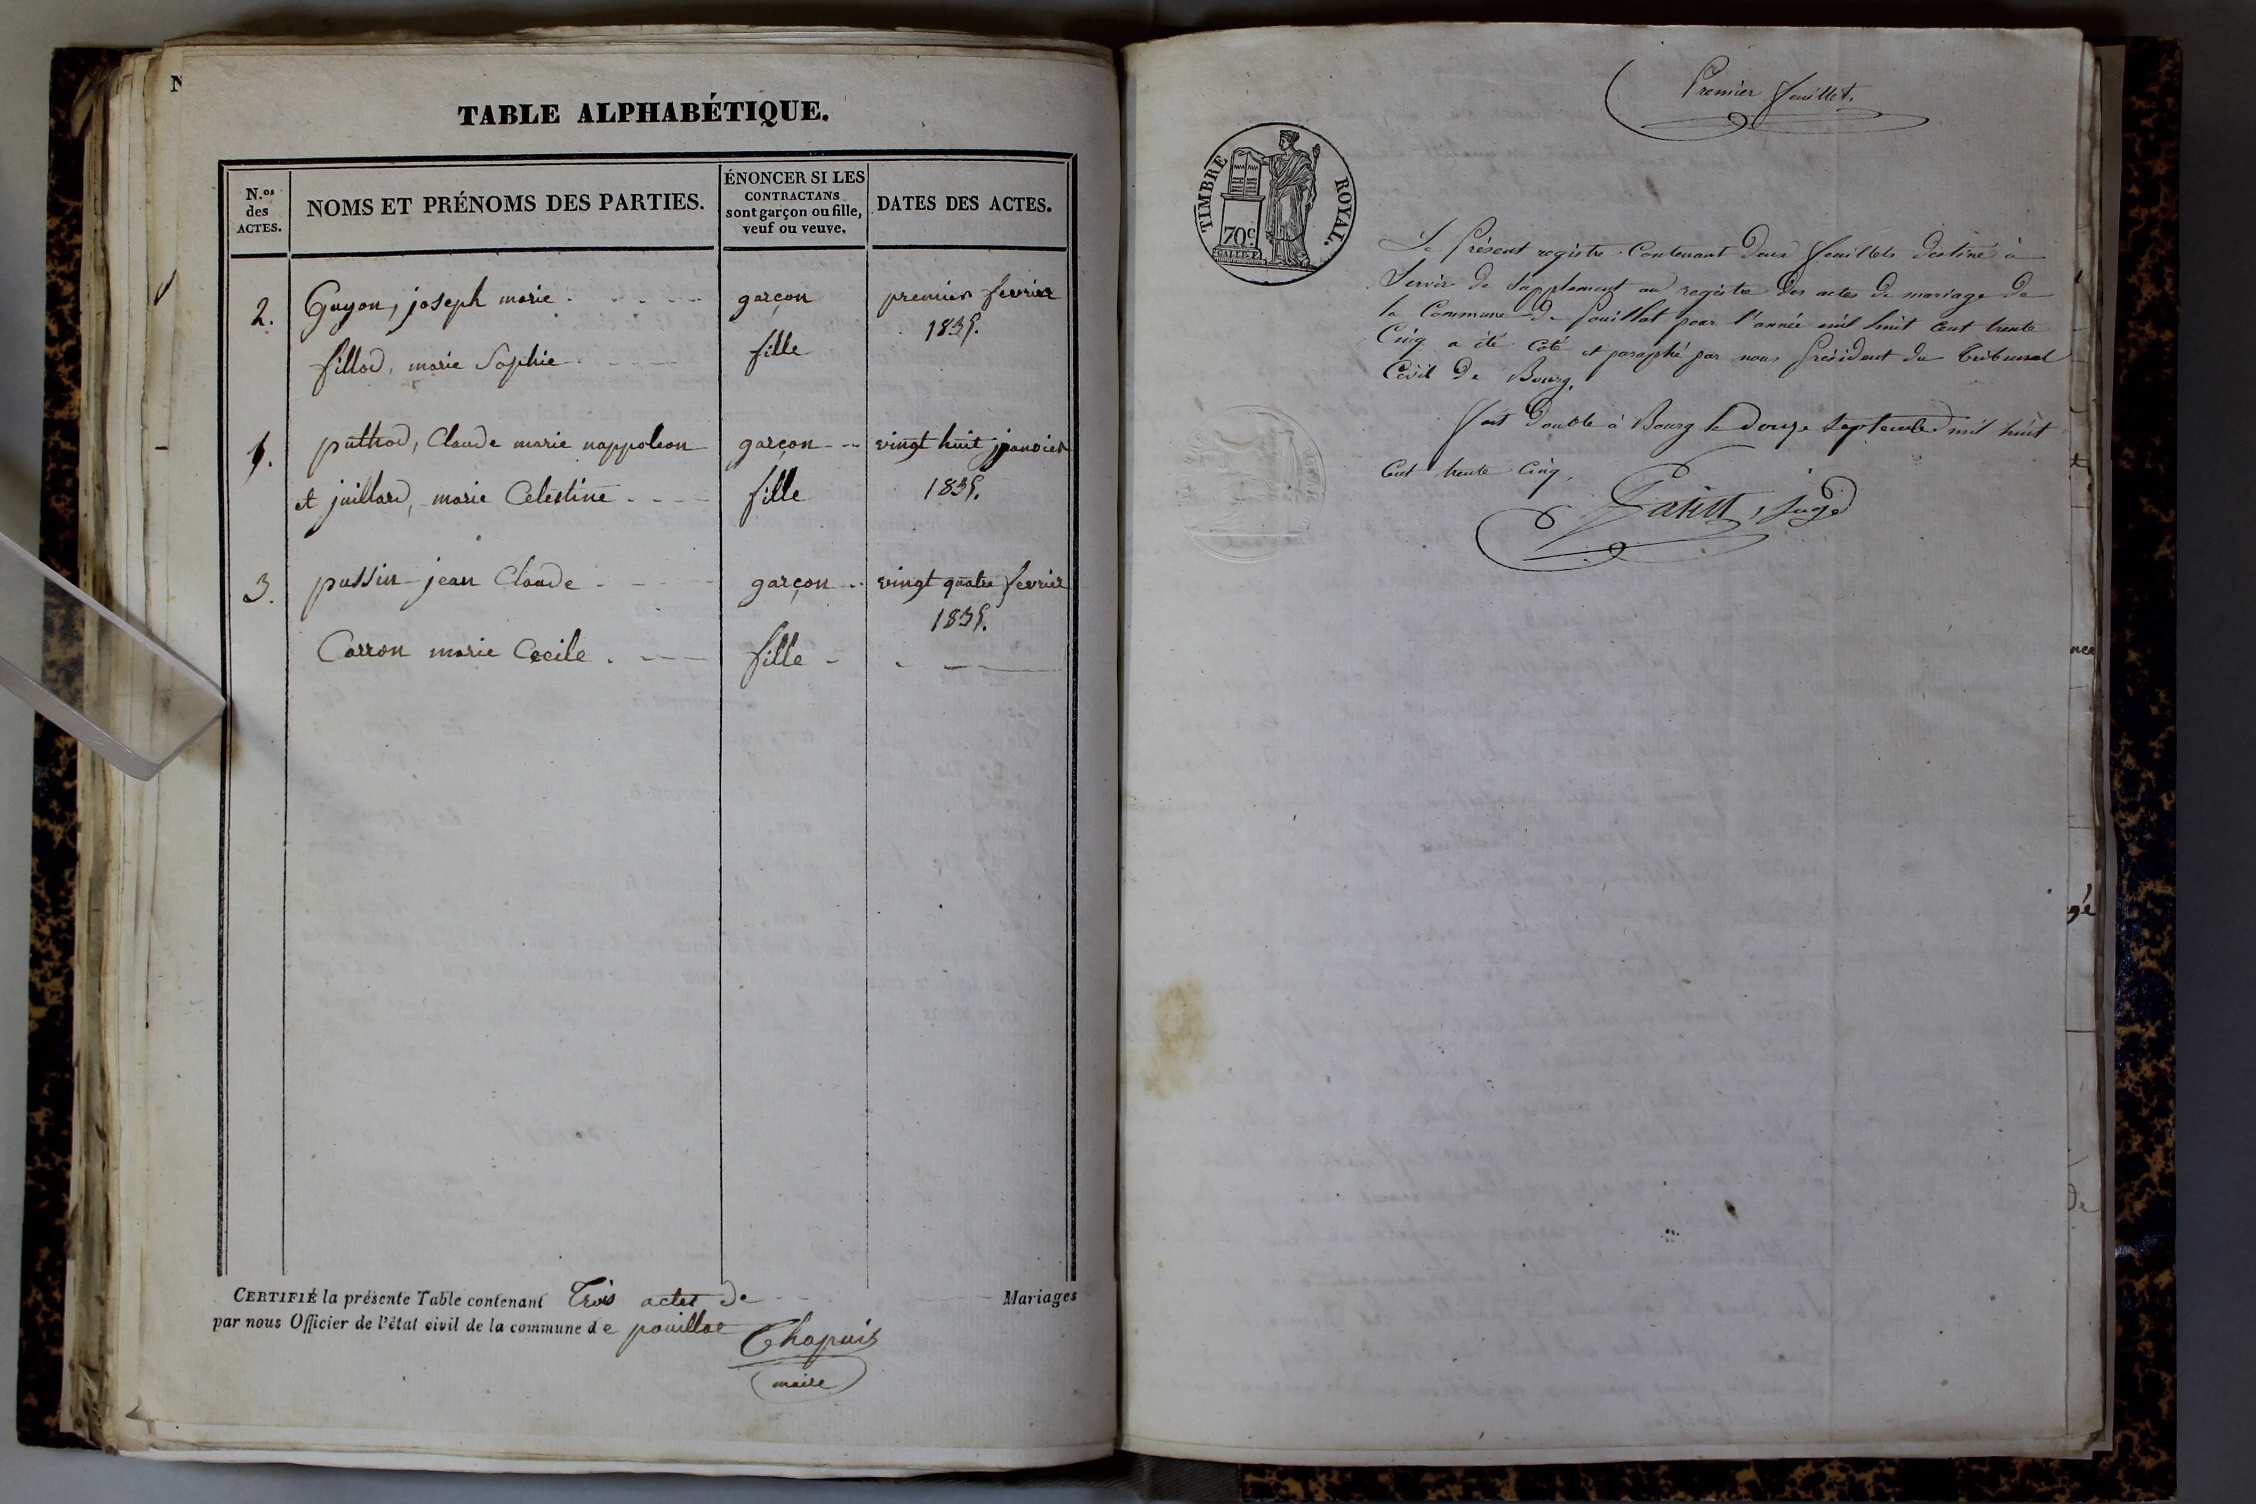 TABLE ALPHABÉTIQUE.
N.os des ACTES.
NOMS ET PRÉNOMS DES PARTIES.
ÉNONCER SI LES CONTRACTANS sont garçon ou fille, veuf ou veuve.
DATES DES ACTES.
2. Guyon, joseph marie garçon premier fevrier
1835.
fillod, marie Sophie fille
1. puthod, Claude marie nappoleon garçon vingt huit janvier
et juillard, marie Celestine fille 1835.
3. pussin jean Claude garçon vingt quatre fevrier
1835.
Carron marie Cecile fille
CERTIFIÉ la présente Table contenant Trois actes de Mariages
par nous Officier de l'état civil de la commune de pouillat
Chapuis
maire
Premier feuillet.
TIMBRE ROYAL.
70c
Le Présent registre Contenant Deux feuillets destiné à
Servir de Supplement au registre des actes de mariage de
la Commune de Pouillat pour l'année mil huit Cent trente
Cinq a été Coté et paraphé par nous Président du Tribunal
Civil De Bourg.
Fait Double à Bourg le Douze Septembre mil huit
Cent trente Cinq.
juge